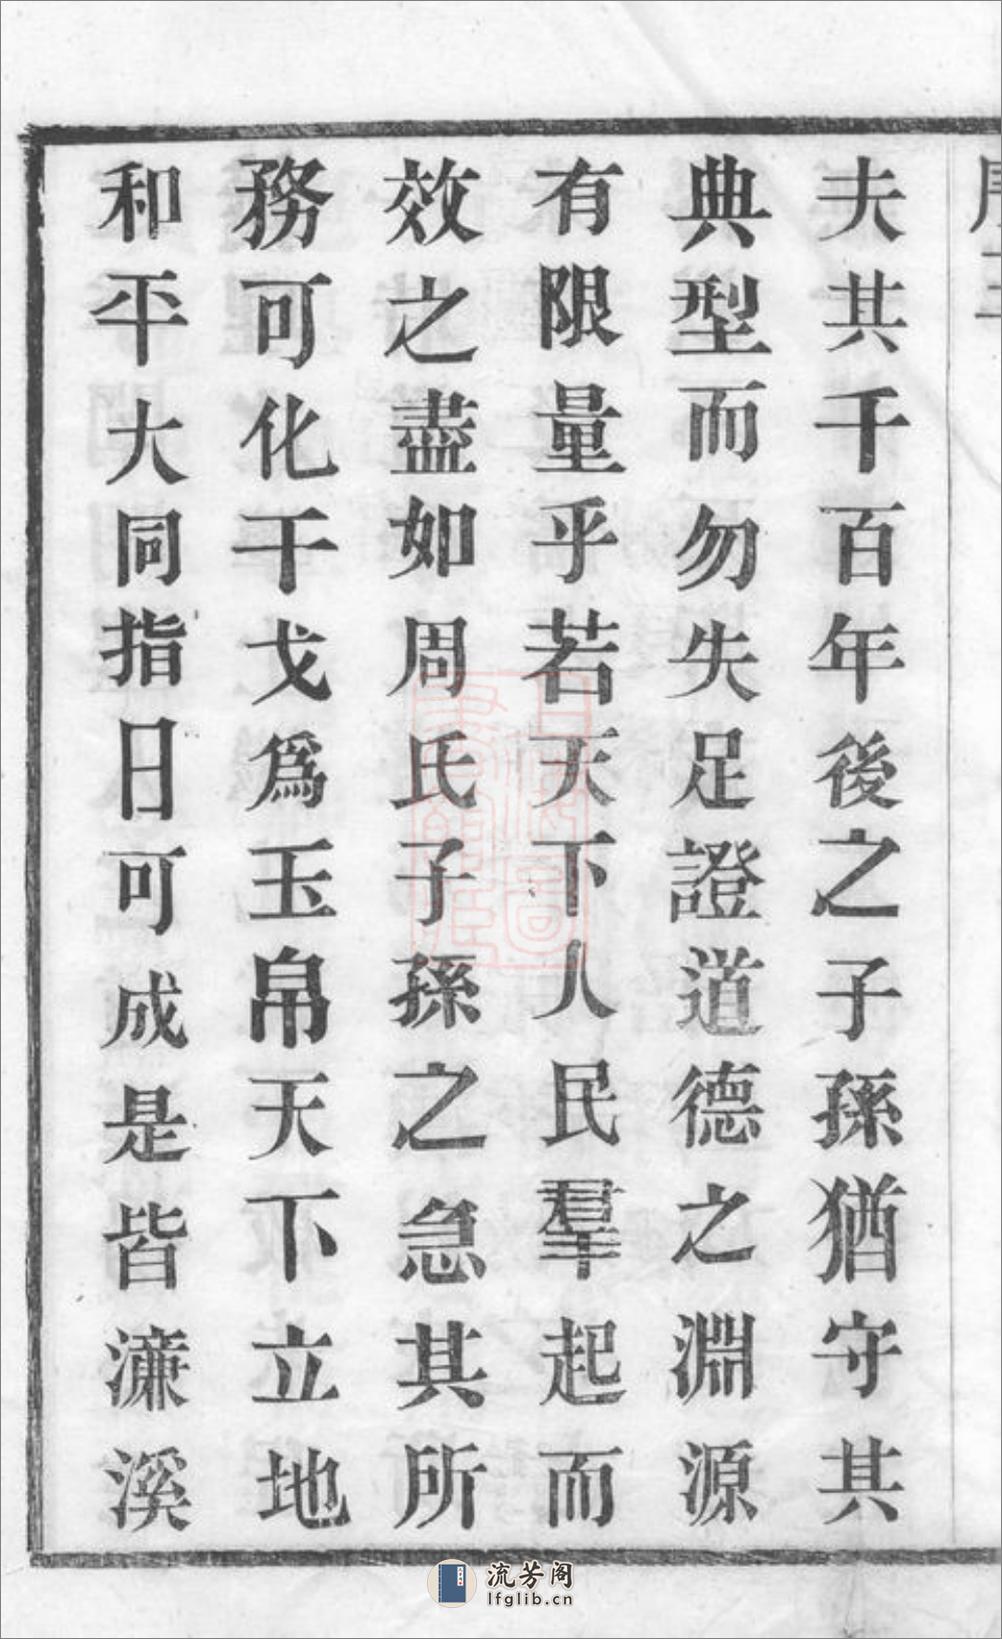 夫其千百年後之子孫猶守其
典型而勿失足證道德之淵源
有限量乎若天下人民羣起而
效之盡如周氏子孫之急其所
務可化干戈爲玉帛天下立地
和平大同指日可成是皆濂溪
流芳阁
lfglib.cn